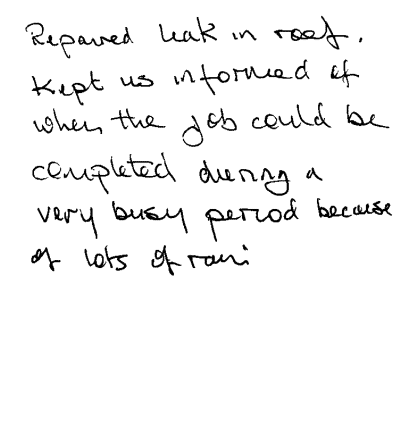 Repaired leak in roof.
Kept us informed of
when the job could be
completed during a
very busy period because
of lots of rain